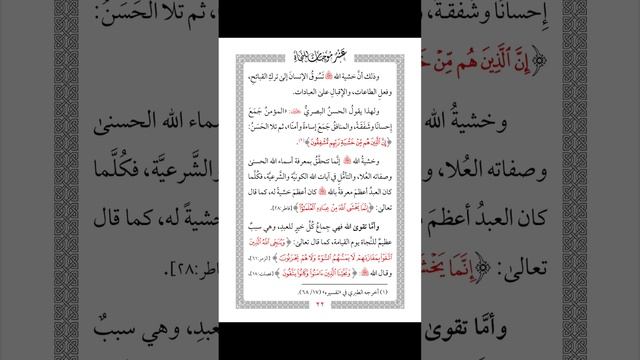 عشر موجبات للنجاة
وذلك أنَّ خشية الله ﷻ تَسُوقُ الإنسانَ إلىٰ تركِ القبائح،
وفعل الطاعات، والإقبالِ علىٰ العبادات.
ولهذا يقول الحسنُ البصريُّ: «المؤمنُ جَمَعَ
إحسانًا وشَفَقَةً، والمنافقُ جَمَعَ إساءةً وأمنًا، ثم تلا الحَسَنُ:
﴿إِنَّ ٱلَّذِينَ هُم مِّنۡ خَشۡيَةِ رَبِّهِم مُّشۡفِقُونَ﴾(١).
وخشيةُ الله ﷻ إنَّما تتحقَّقُ بمعرفة أسماء الله الحسنىٰ
وصفاته العُلا، والتأمُّلِ في آيات الله الكونيَّة والشَّرعيَّة، فكُلَّما
كان العبدُ أعظمَ معرفةً بالله ﷻ كان أعظمَ خشيةً له، كما قال
تعالىٰ: ﴿إِنَّمَا يَخۡشَى ٱللَّهَ مِنۡ عِبَادِهِ ٱلۡعُلَمَٰٓؤُاْ﴾ [فاطر:٢٨].
وأمَّا تقوىٰ الله فهي جِماعُ كُلِّ خيرٍ للعبدِ، وهي سببٌ
عظيمٌ للنَّجاة يوم القيامة، كما قال تعالىٰ: ﴿وَيُنَجِّي ٱللَّهُ ٱلَّذِينَ
ٱتَّقَوۡاْ بِمَفَازَتِهِمۡ لَا يَمَسُّهُمُ ٱلسُّوٓءُ وَلَا هُمۡ يَحۡزَنُونَ﴾ [الزمر:٦١]،
وقال الله ﷻ: ﴿وَنَجَّيۡنَا ٱلَّذِينَ ءَامَنُواْ وَكَانُواْ يَتَّقُونَ﴾ [فصلت:١٨]،
(١) أخرجه الطبري في «تفسيره» (١٧/ ٦٨).
٢٢